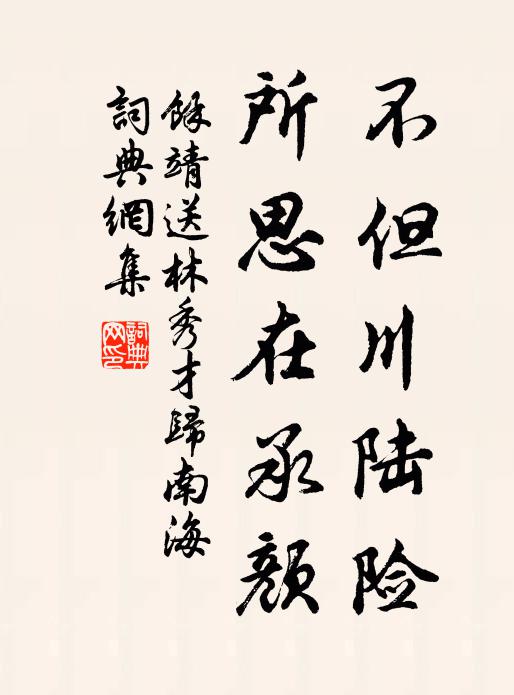 不但川陆险
所思在承颜
餘靖送林秀才歸南海
詞典網集
詞典网印